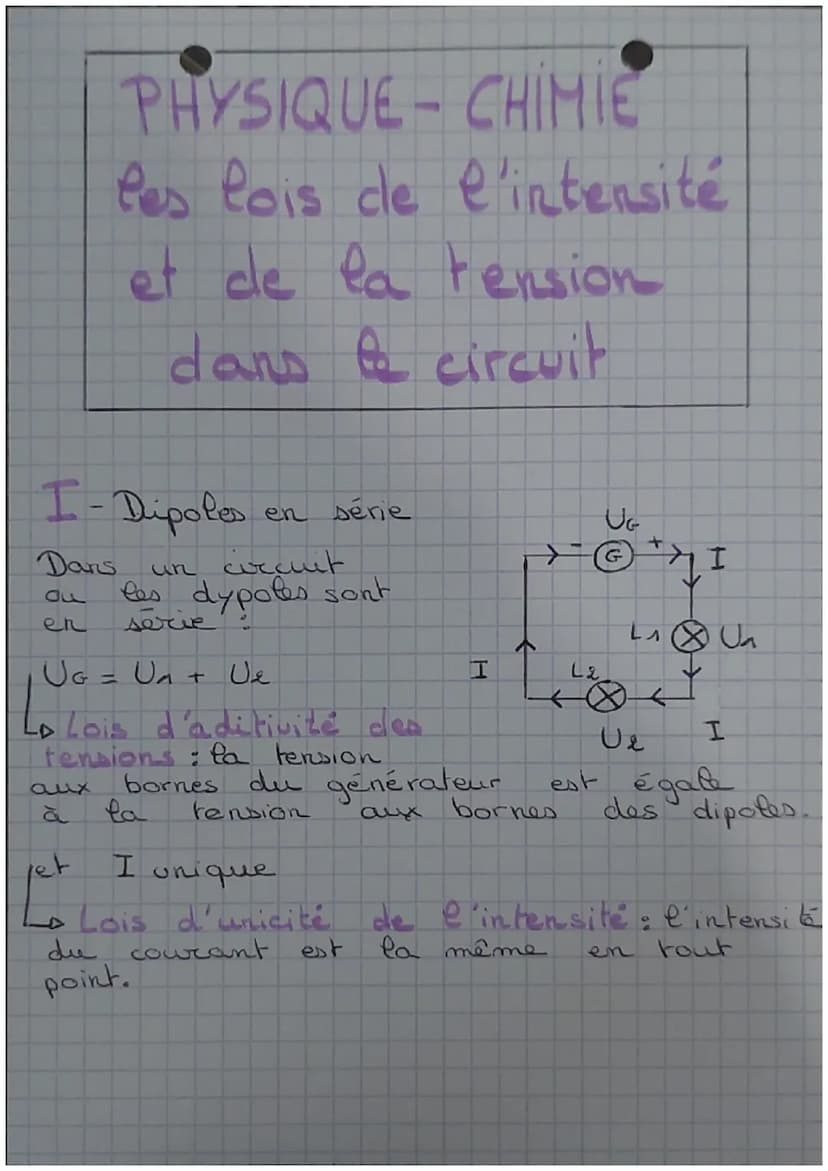 PHYSIQUE - CHIMIE
les lois de l'intensité
et de la tension
dans le circuit
I - Dipoles en série
Dans un circuit
ou les dypoles sont
en série :
UG = U1 + U2
Lois d'aditivité des
tensions : la tension
aux bornes du générateur est égale
à la tension aux bornes des dipoles.
et I unique
Lois d'unicité de l'intensité : l'intensité
du courant est la même en tout
point.
UG
- G + I
L1 U1
I L2
U2 I